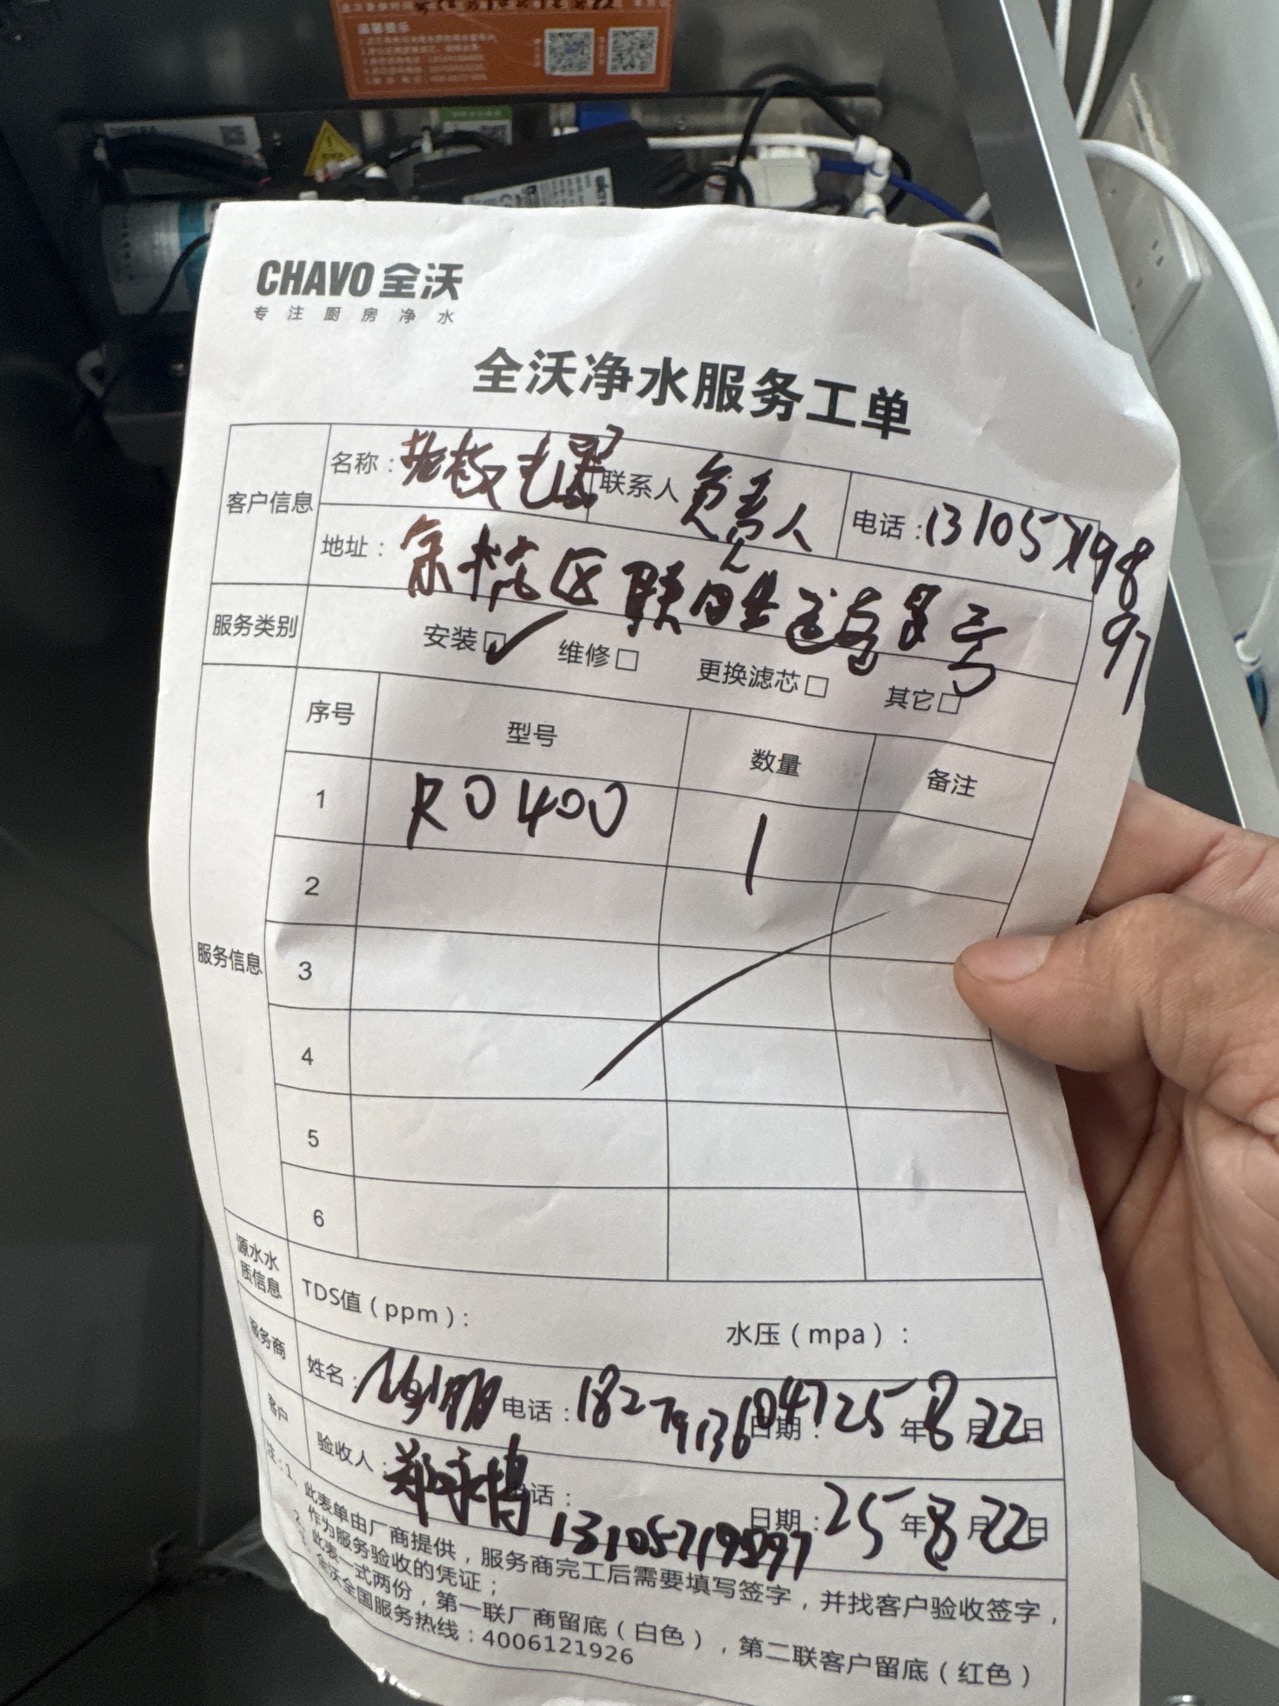 温馨提示
CHAVO 全沃
专注厨房净水
全沃净水服务工单
客户信息
名称：老板电器 联系人 负责人 电话：13105719897
地址：余杭区
服务类别 安装☑ 维修□ 更换滤芯□ 其它□
服务信息
序号 型号 数量 备注
1 RO400 1
2
3
4
5
6
源水水质信息 TDS值（ppm）： 水压（mpa）：
服务商 姓名： 电话：18279136047 日期：25年8月22日
客户 验收人：郑永博 电话：13105719897 日期：25年8月22日
注：1、此表单由厂商提供，服务商完工后需要填写签字，并找客户验收签字，
作为服务验收的凭证；
2、此表一式两份，第一联厂商留底（白色），第二联客户留底（红色）
全沃全国服务热线：4006121926